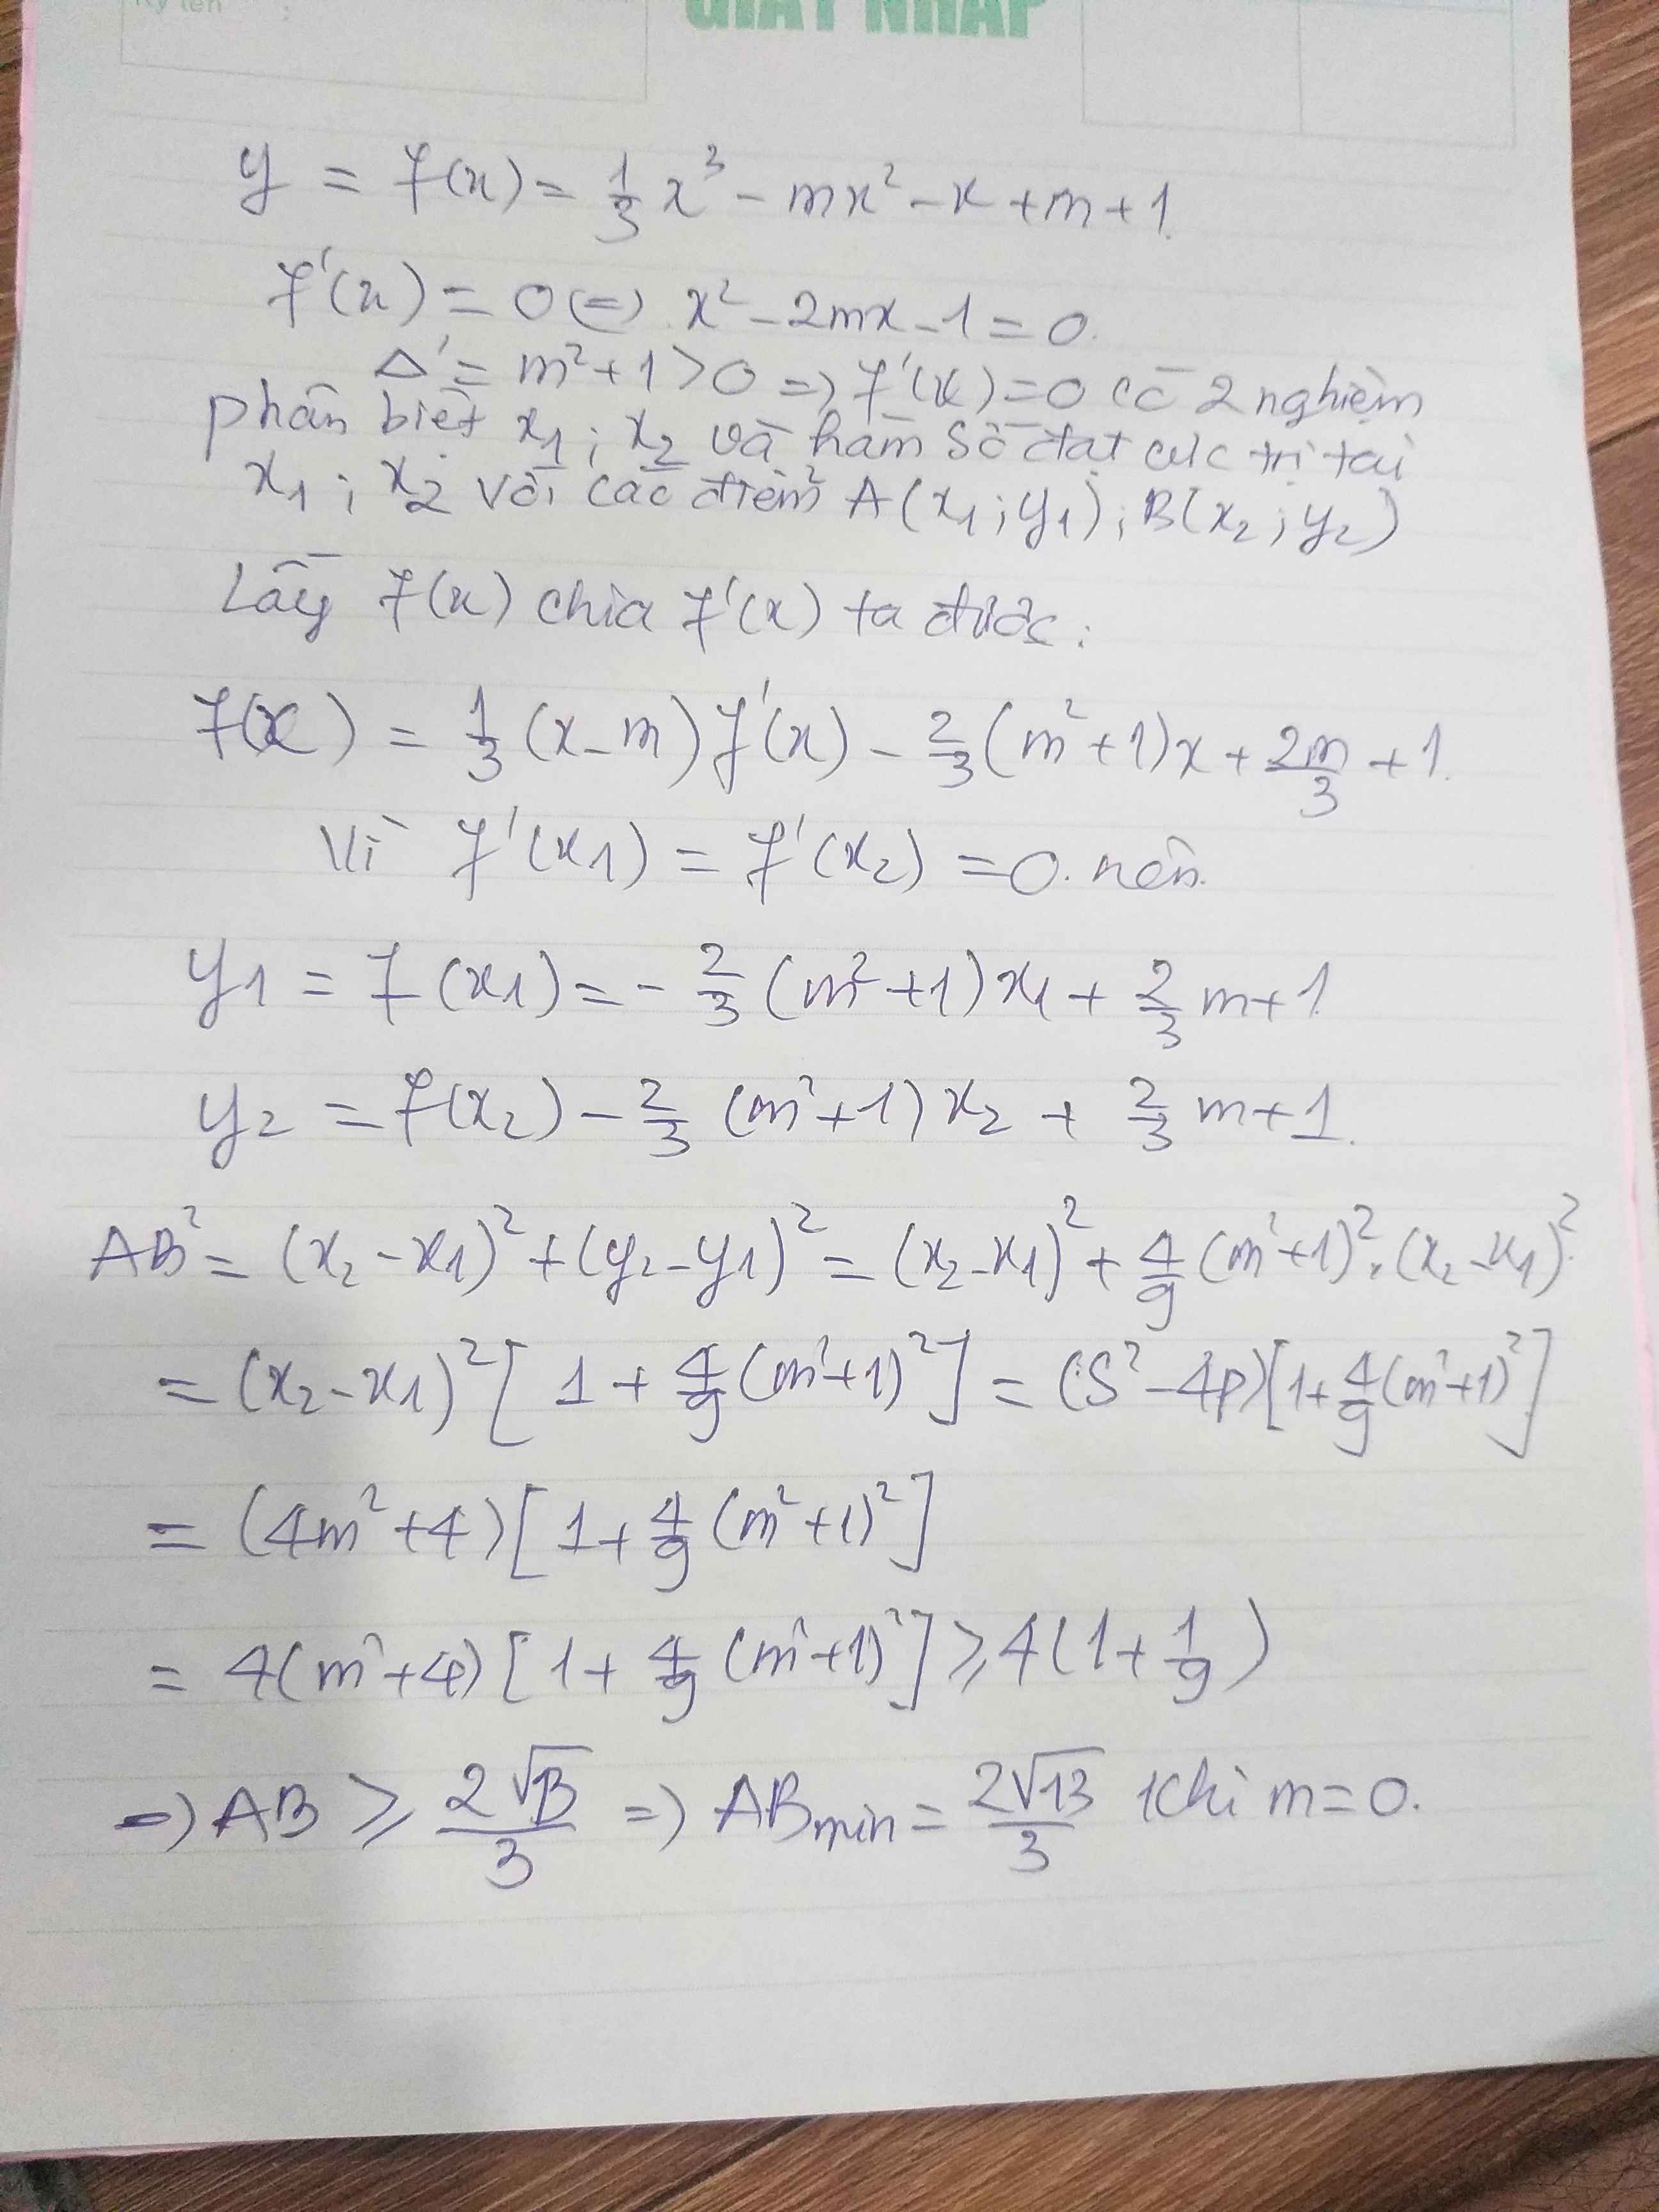 Ký tên :
GIẤY NHÁP
y = f(x) = 1/3 x³ - mx² - x + m + 1.
f'(x) = 0 (=) x² - 2mx - 1 = 0.
Δ' = m² + 1 > 0 => f'(x) = 0 có 2 nghiệm
phân biệt x₁ ; x₂ và hàm số đạt cực trị tại
x₁ ; x₂ với các điểm A(x₁ ; y₁) ; B(x₂ ; y₂)
Lấy f(x) chia f'(x) ta được :
f(x) = 1/3 (x - m) f'(x) - 2/3 (m² + 1)x + 2m/3 + 1.
Vì f'(x₁) = f'(x₂) = 0. nên.
y₁ = f(x₁) = - 2/3 (m² + 1) x₁ + 2/3 m + 1.
y₂ = f(x₂) - 2/3 (m² + 1) x₂ + 2/3 m + 1.
AB² = (x₂ - x₁)² + (y₂ - y₁)² = (x₂ - x₁)² + 4/9 (m² + 1)² . (x₂ - x₁)²
= (x₂ - x₁)² [1 + 4/9 (m² + 1)²] = (S² - 4p) [1 + 4/9 (m² + 1)²]
= (4m² + 4) [1 + 4/9 (m² + 1)²]
= 4(m² + 4) [1 + 4/9 (m² + 1)²] ≥ 4(1 + 1/9)
=> AB ≥ 2√13/3 => ABmin = 2√13/3 khi m = 0.